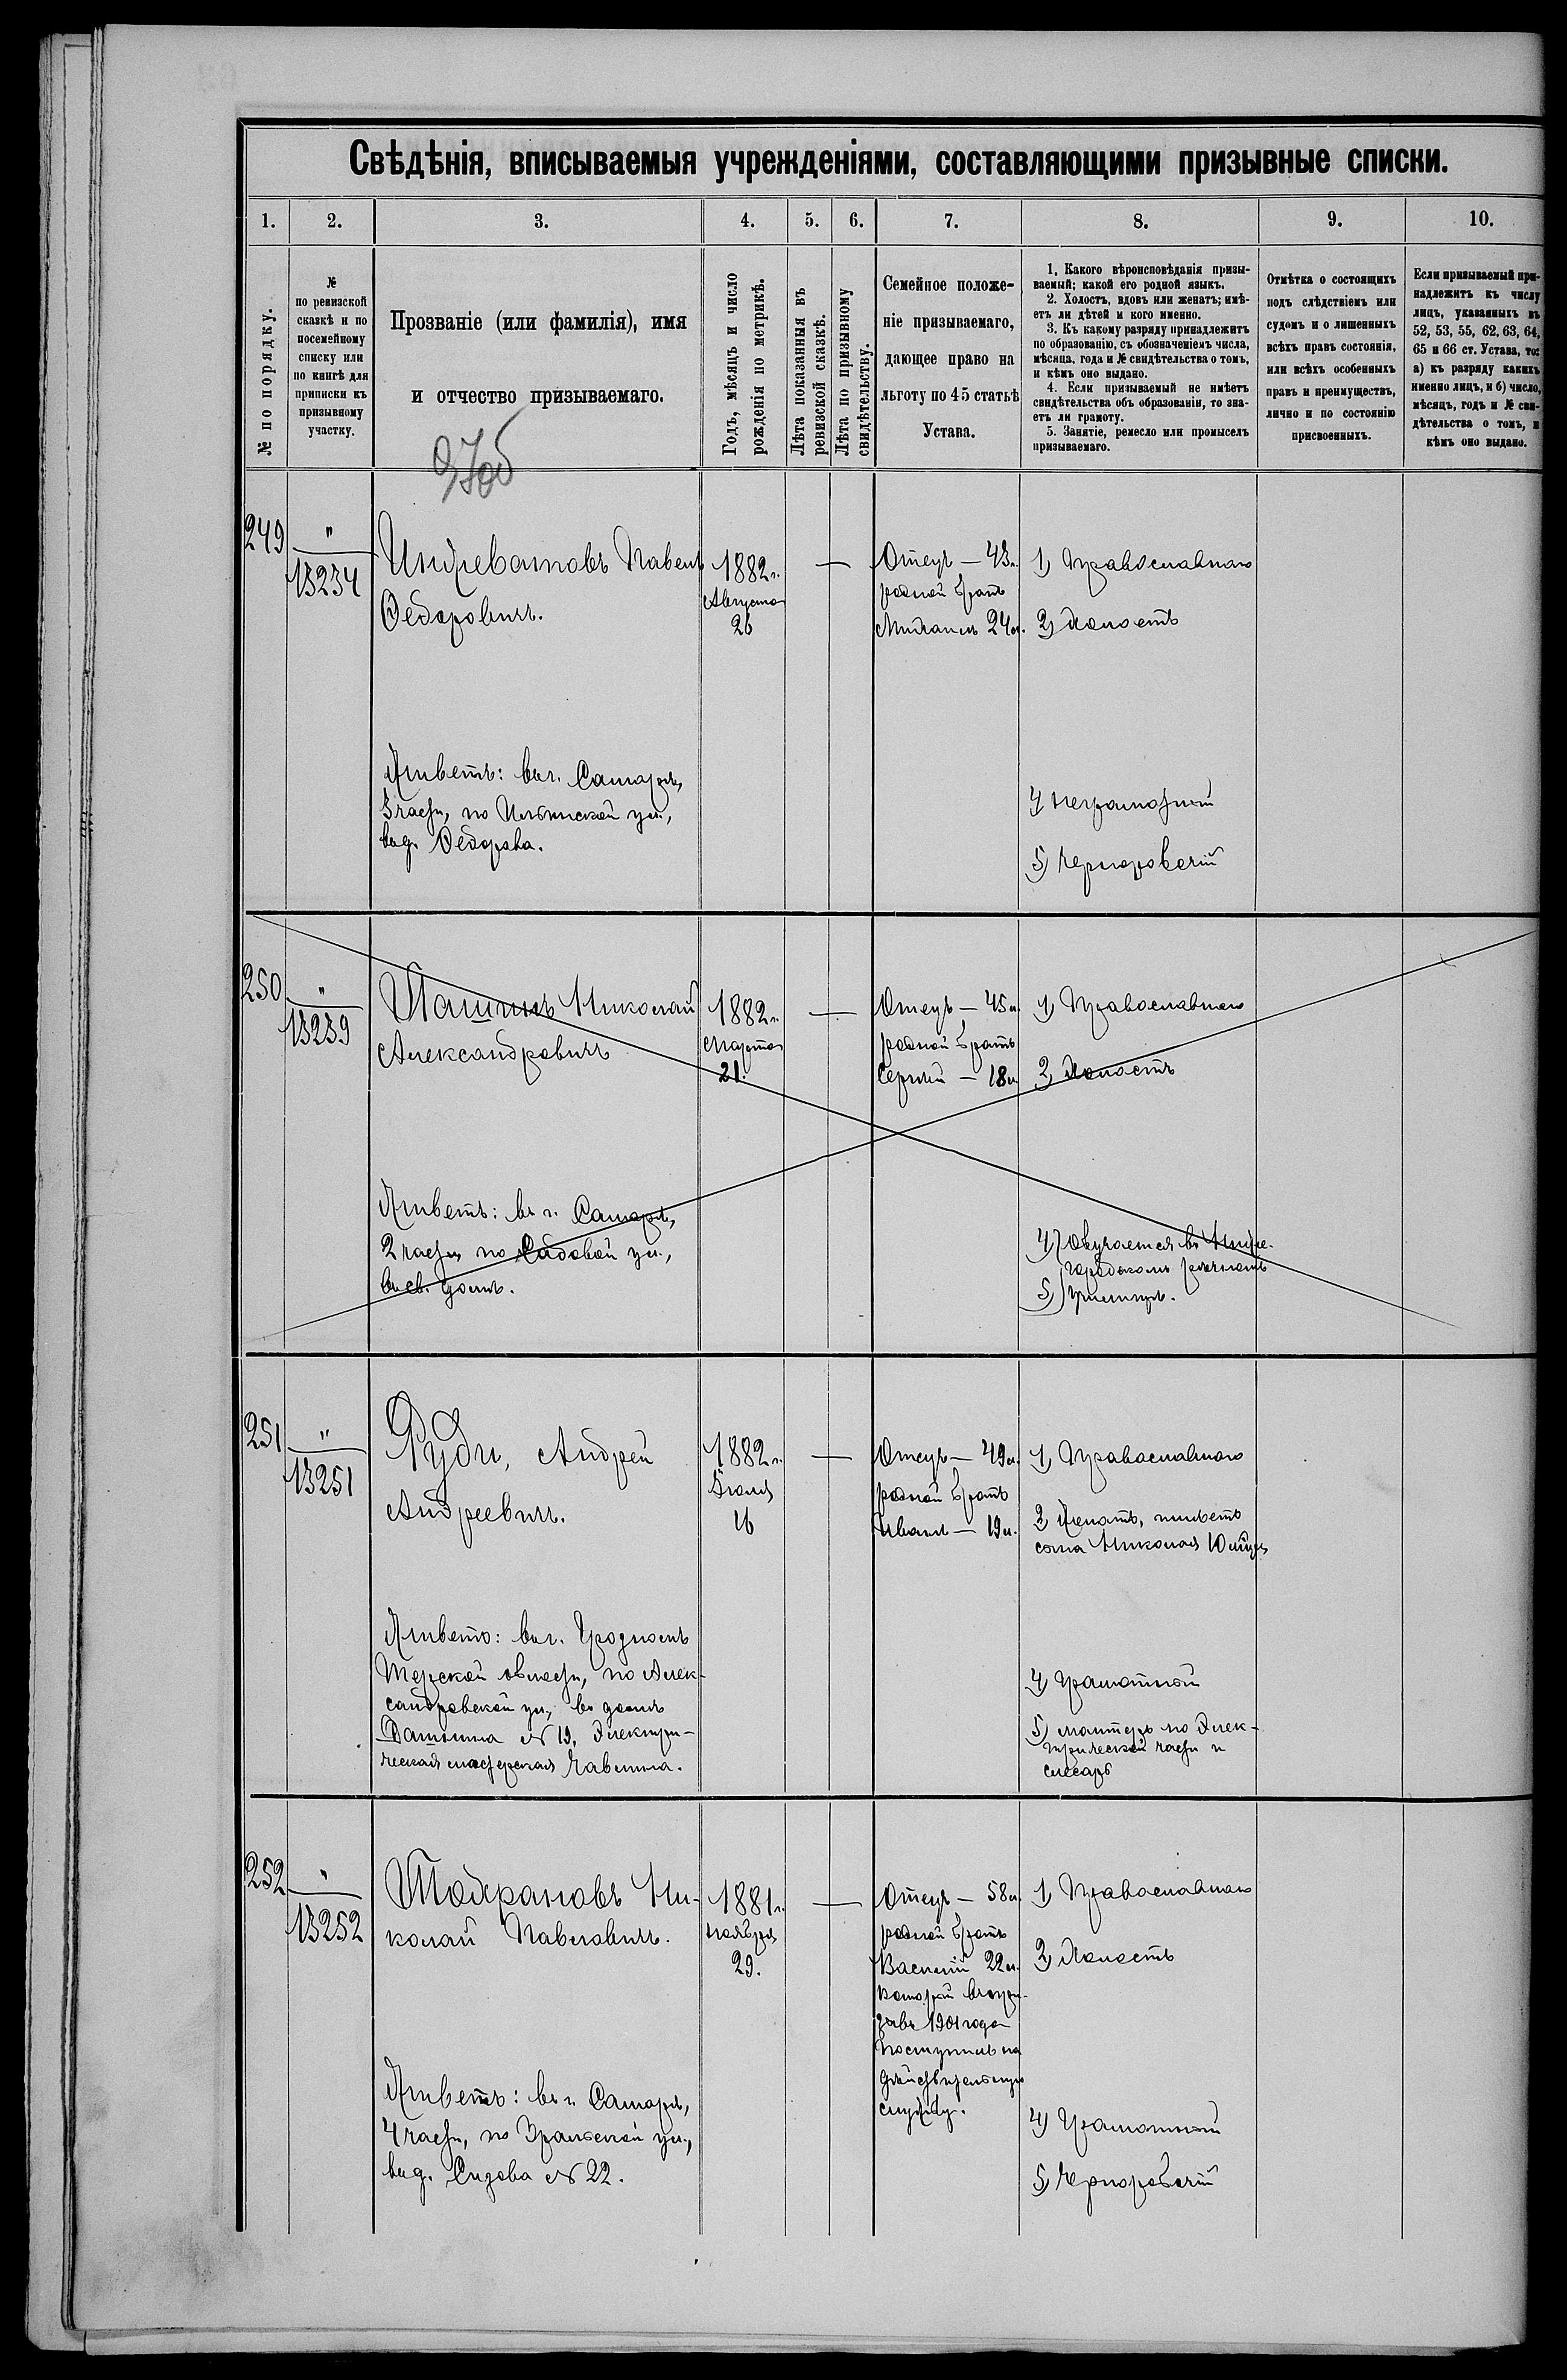 Свѣдѣнія, вписываемыя учрежденіями, составляющими призывные списки.
1. 2. 3. 4. 5. 6. 7. 8. 9. 10.
№ по порядку.
№
по ревизской
сказкѣ и по
посемейному
списку или
по книгѣ для
приписки къ
призывному
участку.
Прозваніе (или фамилія), имя
и отчество призываемаго.
Годъ, мѣсяцъ и число
рожденія по метрикѣ.
Лѣта показанныя въ
ревизской сказкѣ.
Лѣта по призывному
свидѣтельству.
Семейное положе-
ніе призываемаго,
дающее право на
льготу по 45 статьѣ
Устава.
1. Какого вѣроисповѣданія призы-
ваемый; какой его родной языкъ.
2. Холостъ, вдовъ или женатъ; имѣ-
етъ ли дѣтей и кого именно.
3. Къ какому разряду принадлежитъ
по образованію, съ обозначеніемъ числа,
мѣсяца, года и № свидѣтельства о томъ,
и кѣмъ оно выдано.
4. Если призываемый не имѣетъ
свидѣтельства объ образованіи, то зна-
етъ ли грамоту.
5. Занятіе, ремесло или промыселъ
призываемаго.
Отмѣтка о состоящихъ
подъ слѣдствіемъ или
судомъ и о лишенныхъ
всѣхъ правъ состоянія,
или всѣхъ особенныхъ
правъ и преимуществъ,
лично и по состоянію
присвоенныхъ.
Если призываемый при-
надлежитъ къ числу
лицъ, указанныхъ въ
52, 53, 55, 62, 63, 64,
65 и 66 ст. Устава, то:
а) къ разряду какихъ
именно лицъ, и б) число,
мѣсяцъ, годъ и № сви-
дѣтельства о томъ, и
кѣмъ оно выдано.
249
"
13234
Павелъ
Ѳедоровичъ.
Живетъ: въ г. Самарѣ,
3 части, по Ильинской ул.,
въ д. Ѳедорова.
1882 г.
Августа
26
—
Отецъ — 43 л.
родной братъ
Михаилъ 24 л.
1) Православнаго
2) Холостъ
4) неграмотный
5) Чернорабочій
250
"
13239
Николай
Александровичъ
Живетъ: въ г. Самарѣ,
2 части, по Садовой ул.,
въ св. домѣ.
1882 г.
Марта
21.
—
Отецъ — 45 л.
родной братъ
Сергѣй — 18 л.
1) Православнаго
2) Холостъ
4) Обучается въ Ниже-
городскомъ рѣчномъ
5) Училищѣ.
251
"
13251
Руди, Андрей
Андреевичъ.
Живетъ: въ г. Грозномъ
Терской области, по Алек-
сандровской ул., въ домѣ
№ 19, Электри-
ческая мастерская
1882 г.
Іюля
16
—
Отецъ — 49 л.
родной братъ
Иванъ — 19 л.
1) Православнаго
2) Женатъ, имѣетъ
сына Николая 10 мѣс.
4) Грамотный
5) монтеръ по Элек-
трической части и
слесарь
252
"
13252
Ни-
колай Павловичъ.
Живетъ: въ г. Самарѣ,
4 части, по Уральской ул.,
въ д. Сизова № 22.
1881 г.
ноября
29.
—
Отецъ — 58 л.
родной братъ
Василій 22 л.
который въ при-
зывъ 1901 года
поступилъ на
дѣйствительную
службу.
1) Православнаго
2) Холостъ
4) Грамотный
5) Чернорабочій